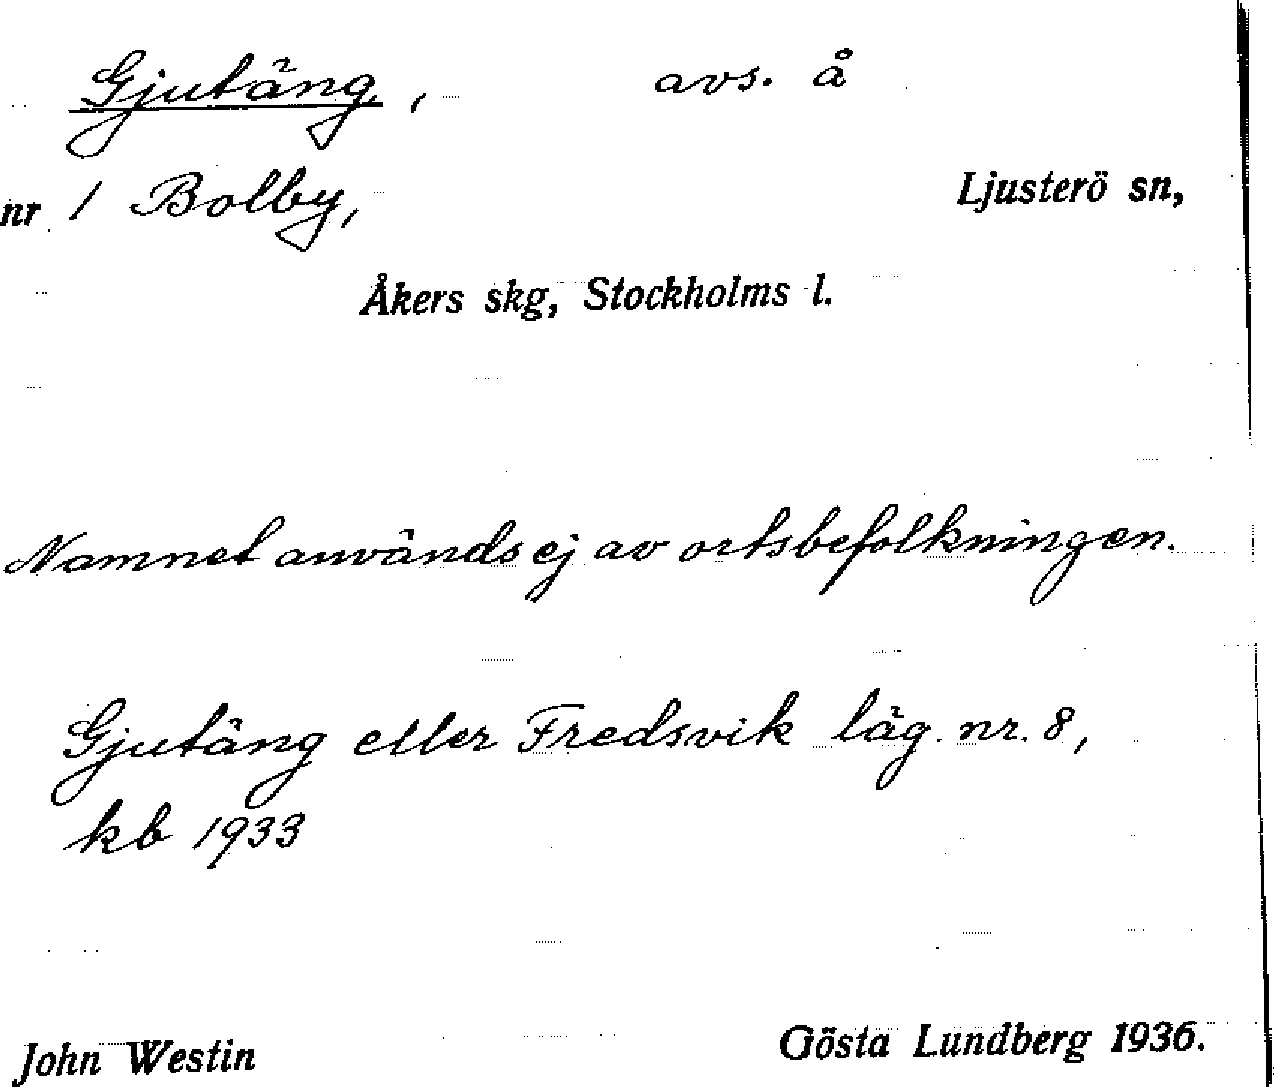 Gjutäng, avs. å
nr 1 Bolby, Ljusterö sn,
Åkers skg, Stockholms l.
Namnet används ej av ortsbefolkningen.
Gjutäng eller Fredsvik läg. nr. 8,
kb 1933
John Westin Gösta Lundberg 1936.